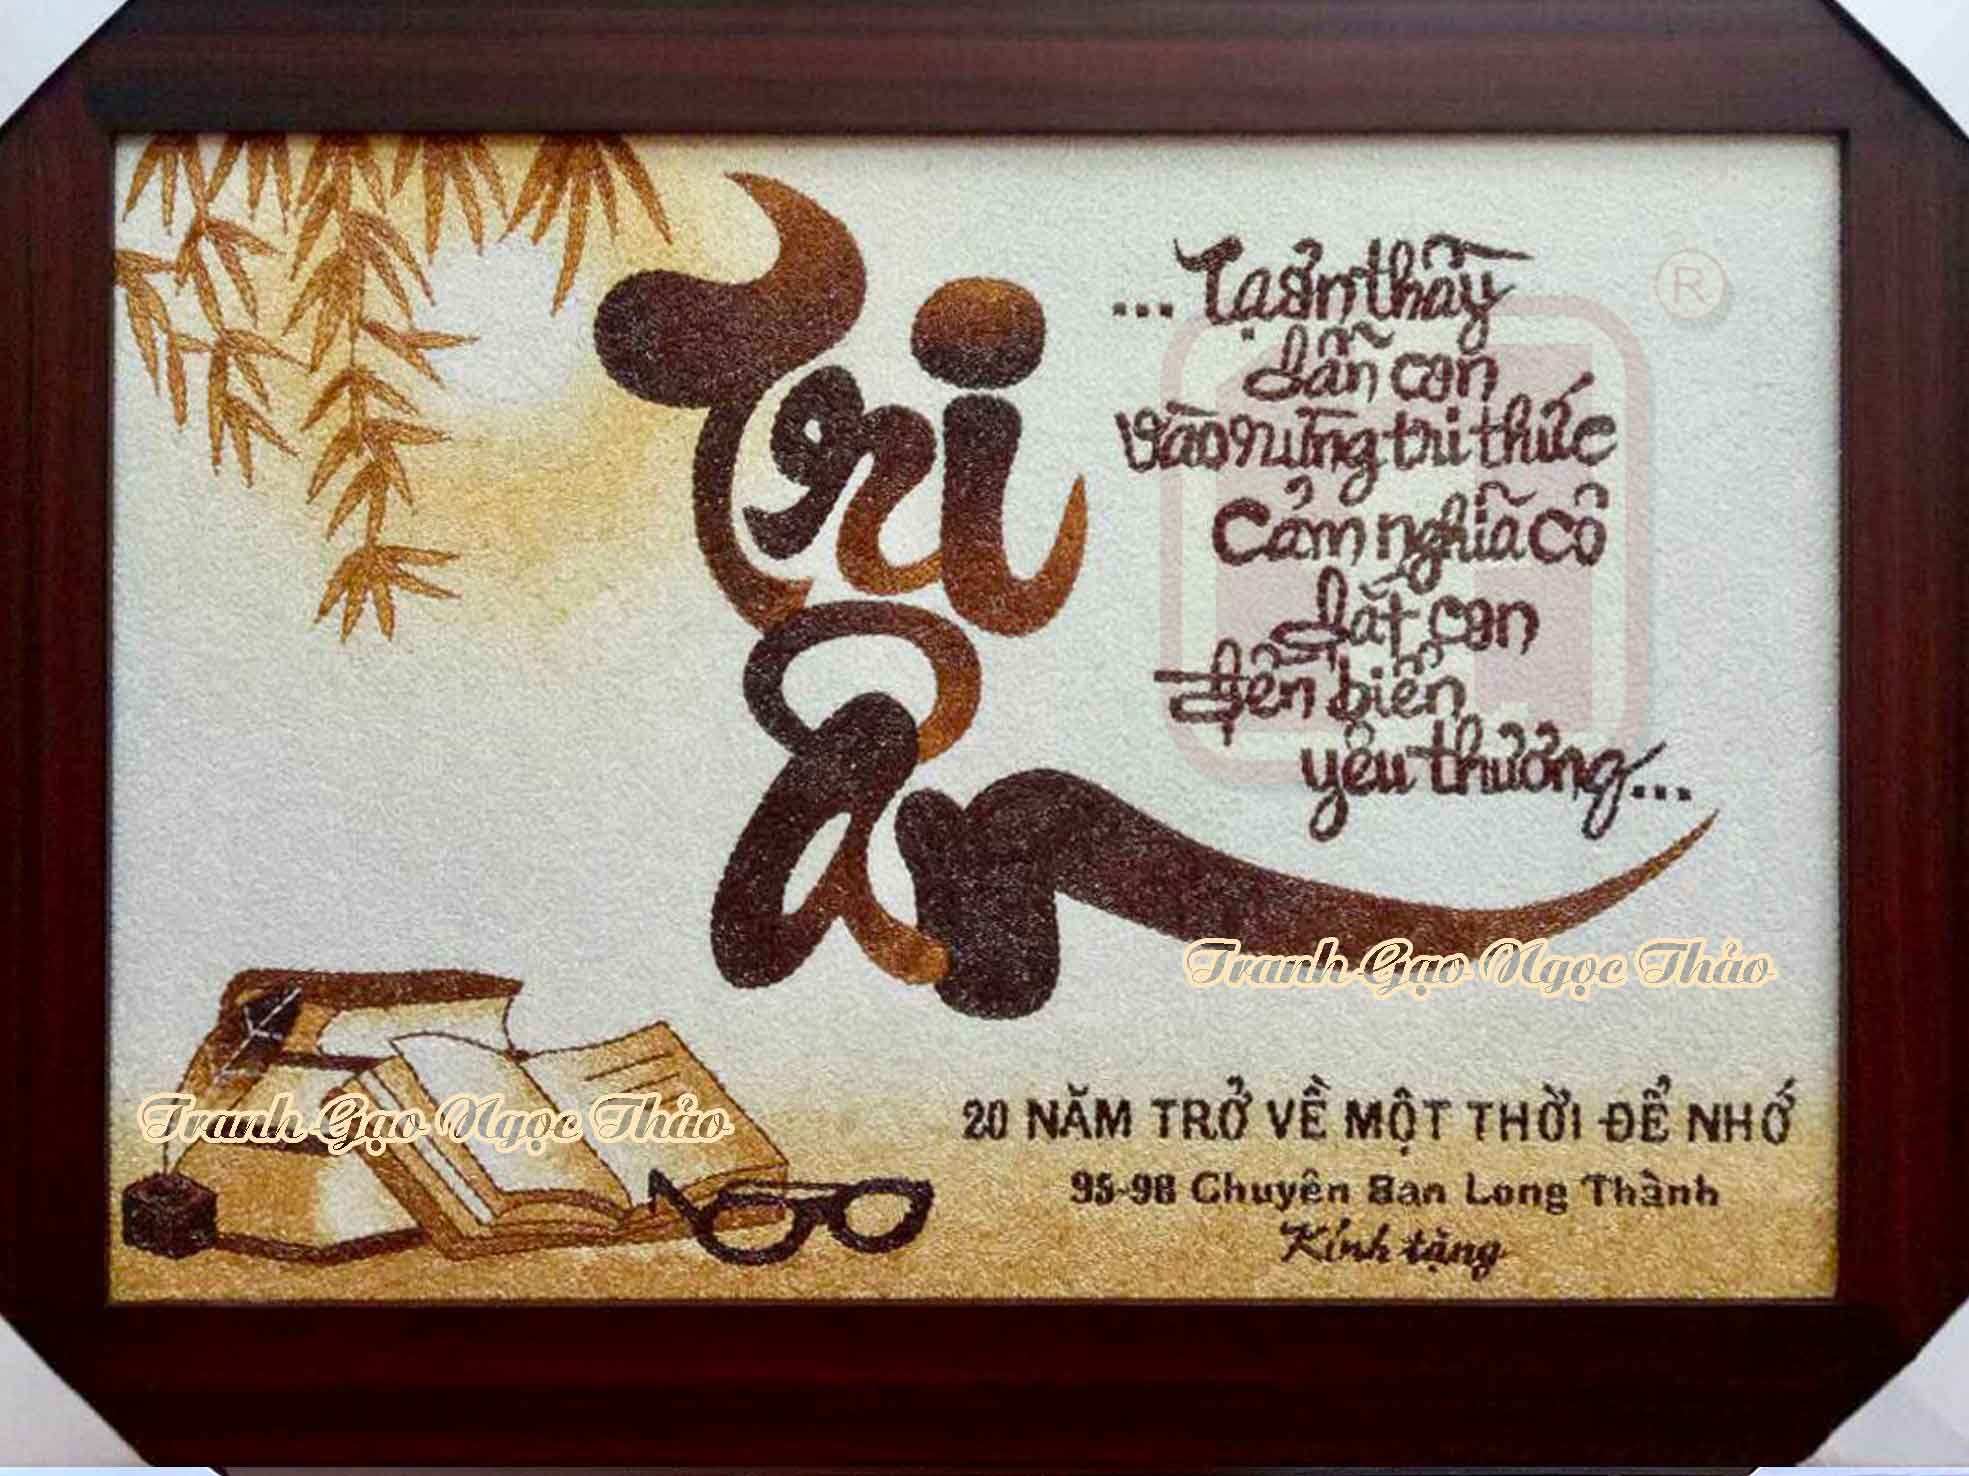 Tri
Ân
... Tạ ơn thầy
dẫn con
vào rừng tri thức
Cảm nghĩa cô
dắt con
đến biển
yêu thương...
®
Tranh Gạo Ngọc Thảo
Tranh Gạo Ngọc Thảo
20 NĂM TRỞ VỀ MỘT THỜI ĐỂ NHỚ
95-98 Chuyên Ban Long Thành
Kính tặng